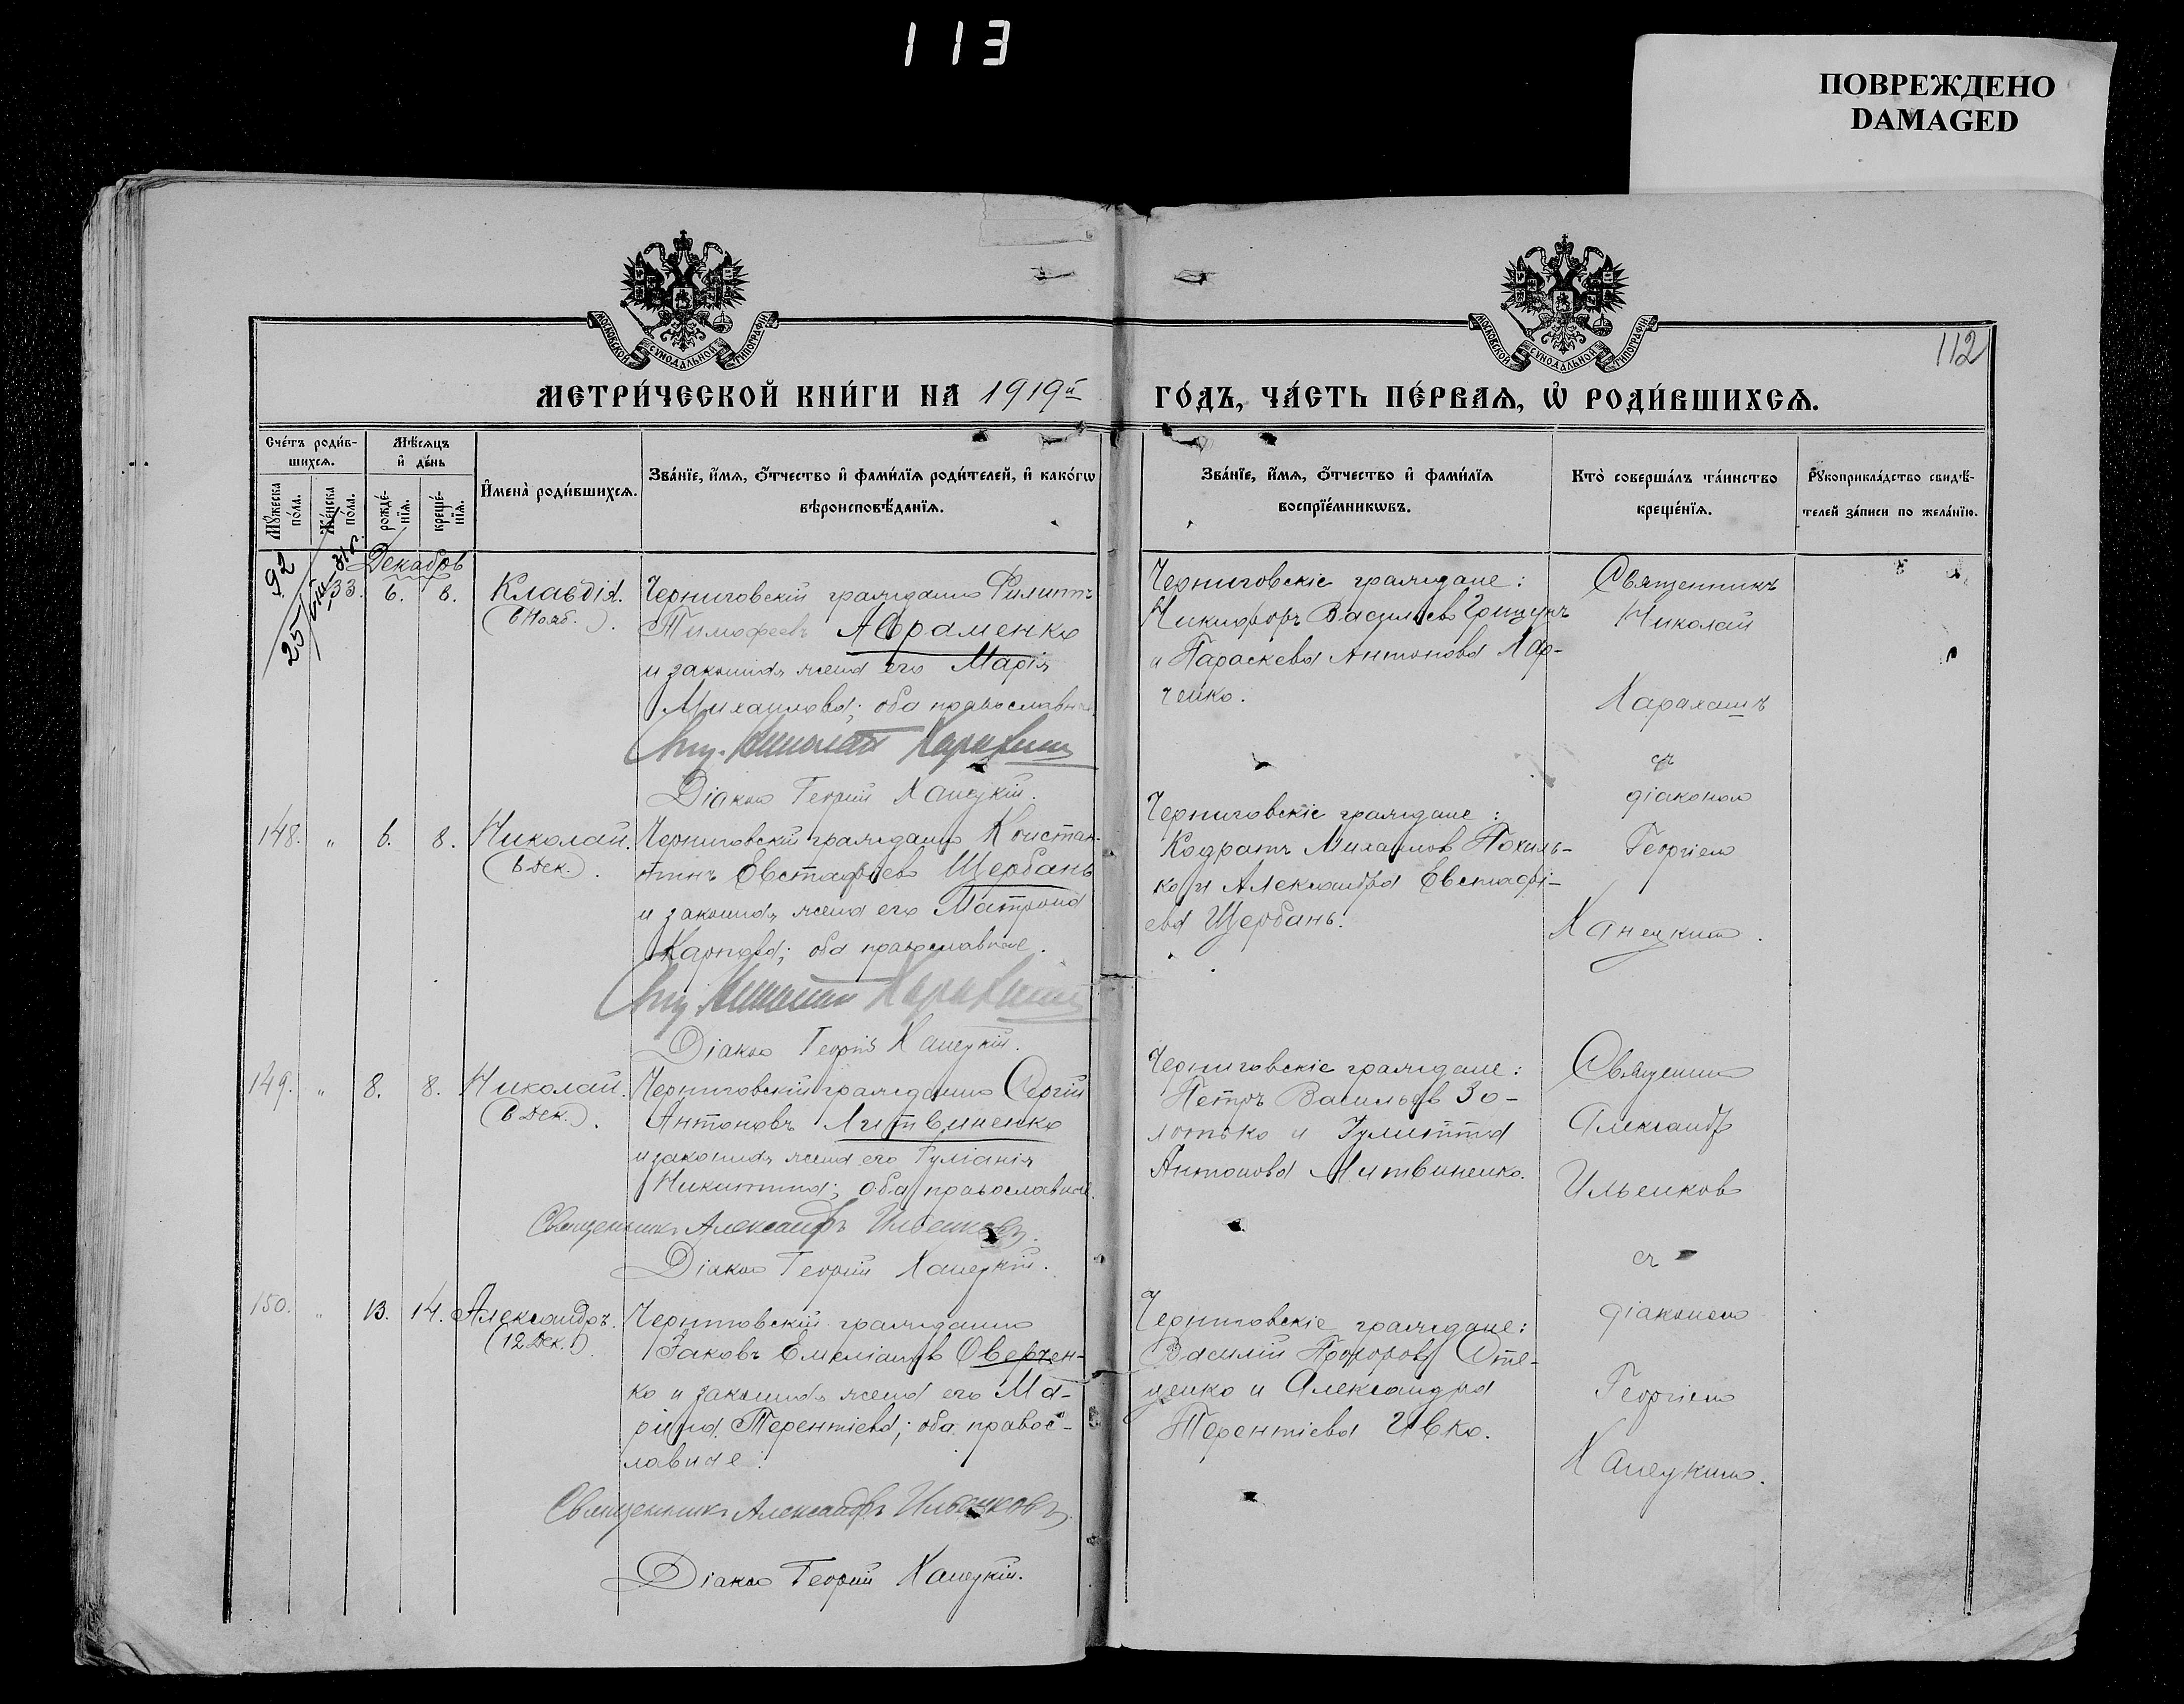 113
ПОВРЕЖДЕНО
DAMAGED
МОСКОВСКОЙ СѴНОДАЛЬНОЙ ТИПОГРАФІИ
МОСКОВСКОЙ СѴНОДАЛЬНОЙ ТИПОГРАФІИ
112
МЕТРИ́ЧЕСКОЙ КНИ́ГИ НА 1919й
ГО́ДЪ, ЧА́СТЬ ПЕ́РВАЯ, Ѡ РОДИ́ВШИХСЯ.
Сче́тъ роди́в-
шихся.
Мꙋ́жеска
по́ла.
Же́нска
пола.
Мѣ́сяцъ
и҆ де́нь
рожде́-
нїя.
креще́-
нїя.
И҆мена̀ роди́вшихся.
Зва́нїе, и҆́мя, ѻ҆́тчество и҆ фами́лїя роди́телей, и҆ како́гѡ
вѣроисповѣ́данїя.
Зва́нїе, и҆́мя, ѻ҆́тчество и҆ фами́лїя
воспрїе́мникѡвъ.
Кто̀ соверша́лъ та́инство
креще́нїя.
Рꙋкоприкла́дство свидѣ́-
телей за́писи по жела́нїю.
Декабрь
92
133. 6. 8. Клавдія.
(6 Нояб.).
Черниговскій гражданинъ Филиппъ
Тимофеевъ Авраменко
и законная жена его Марія
Михаилова; оба православные.
Свщ. Николай Карахимъ
Діаконъ Георгій Ханецкій.
Черниговскіе граждане:
Никифоръ Васильевъ Грищукъ
и Параскева Антонова Лар-
ченко.
Священникъ
Николай
съ
діакономъ
Георгіемъ
Ханецкимъ.
148. „ 6. 8. Николай.
(6 Дек.).
Черниговскій гражданинъ Констан-
тинъ Евстафіевъ Щербань
и законная жена его Матрона
Карпова; оба православные.
Діаконъ Георгій Ханецкій.
Черниговскіе граждане:
Кодратъ Михаиловъ Похиль-
ко и Александра Евстафі-
ева Щербань.
149. „ 8. 8. Николай.
(6 Дек.).
Черниговскій гражданинъ Сергій
Антоновъ Литвиненко
и законная жена его Іуліанія
Никитина; оба православные.
Священникъ Александръ Ильенковъ.
Діаконъ Георгій Ханецкій.
Черниговскіе граждане:
Петръ Васильевъ Зо-
лотько и Іулитта
Антонова Литвиненко.
Священникъ
Александръ
Ильенковъ
съ
діакономъ
Георгіемъ
Ханецкимъ.
150. „ 13. 14. Александръ.
(12 Дек.).
Черниговскій гражданинъ
Іаковъ Емиліановъ Оверчен-
ко и законная жена его Ма-
рина Терентіева; оба правос-
лавные.
Священникъ Александръ Ильенковъ.
Діаконъ Георгій Ханецкій.
Черниговскіе граждане:
Василій Прохоровъ Оте-
ценко и Александра
Терентіева Ивко.